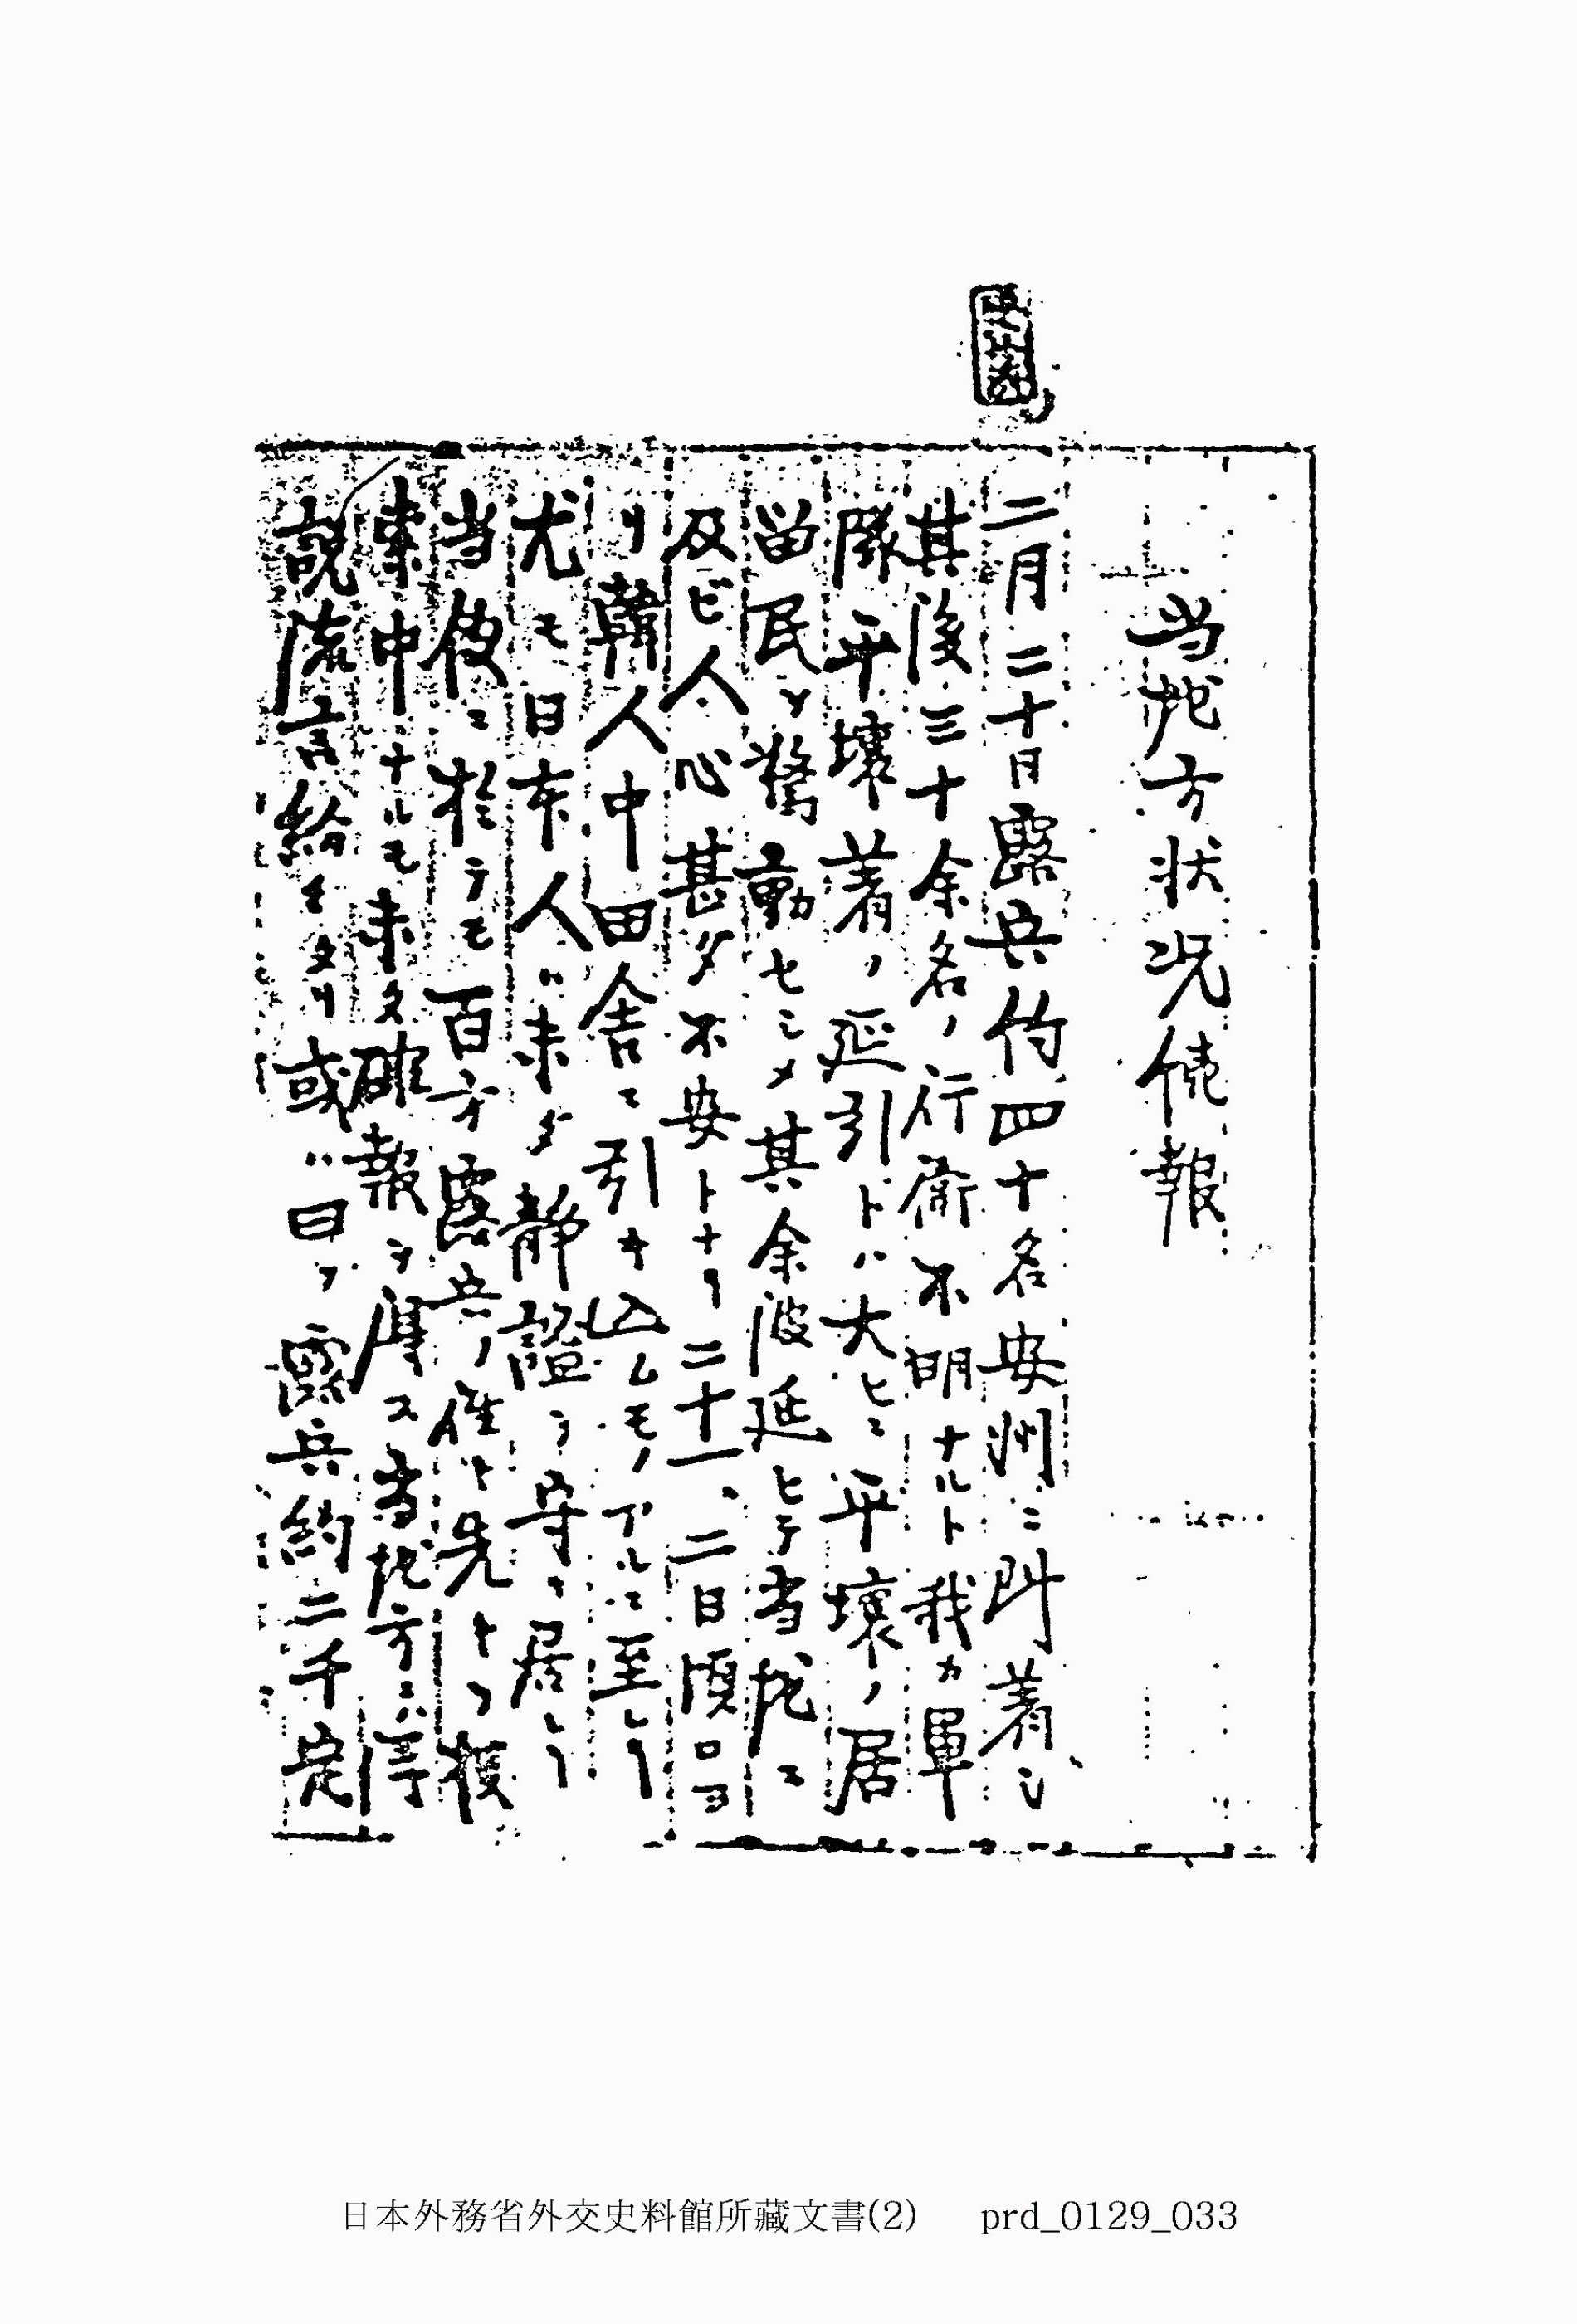 当地方状況続報
二月二十日露兵約四十名安州ニ到着シ
其後三十余名ノ行衛不明ナルト我カ軍
隊平壌着ノ延引トハ大ヒニ平壌ノ居
留民ヲ驚動セシメ其余波延ヒテ当地ニ
及ビ人心甚ダ不安トナリ二十一、二日頃ロヨ
リ韓人中田舎ニ引キ込ムモノアルニ至レリ
尤モ日本人ハ未ダ静謐ヲ守リ居レリ
当館ニ於テモ百方露兵ノ進ト先トヲ捜
索中ナルモ未タ確報ヲ得ス当地方ニハ浮
説流言紛々タリ或ハ曰ク露兵約二千定
日本外務省外交史料館所藏文書(2) prd_0129_033